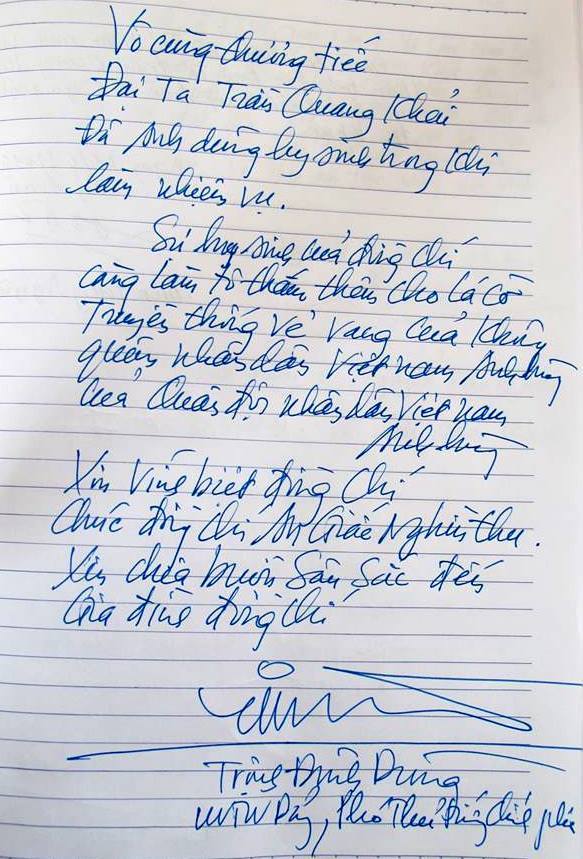 Vô cùng thương tiếc
Đại Tá Trần Quang Khải
Đã Anh dũng hy sinh trong khi
làm nhiệm vụ.
Sự hy sinh của đồng chí
càng làm tô thắm thêm cho lá cờ
Truyền thống vẻ vang của Không
quân nhân dân Việt Nam Anh hùng
của Quân đội nhân dân Việt Nam
Anh hùng
Xin Vĩnh biệt đồng chí
Chúc đồng chí An Giấc Nghìn thu.
Xin chia buồn Sâu Sắc đến
Gia đình đồng chí
Trịnh Đình Dũng
UVTW Đảng, Phó Thủ tướng Chính phủ